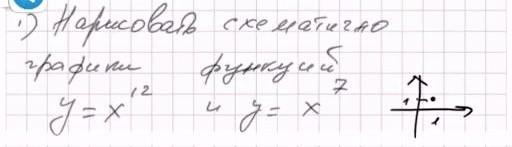 1) Нарисовать схематично
графики функций
y = x¹² и y = x⁷
1
1